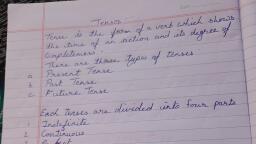 Tenses
Tense is the form of a verb which shows
the time of an action and its degree of
completeness.
There are three types of tenses
a Present Tense
b Past Tense
c Future Tense
Each tenses are divided into four parts
1 Indefinite
2 Continuous